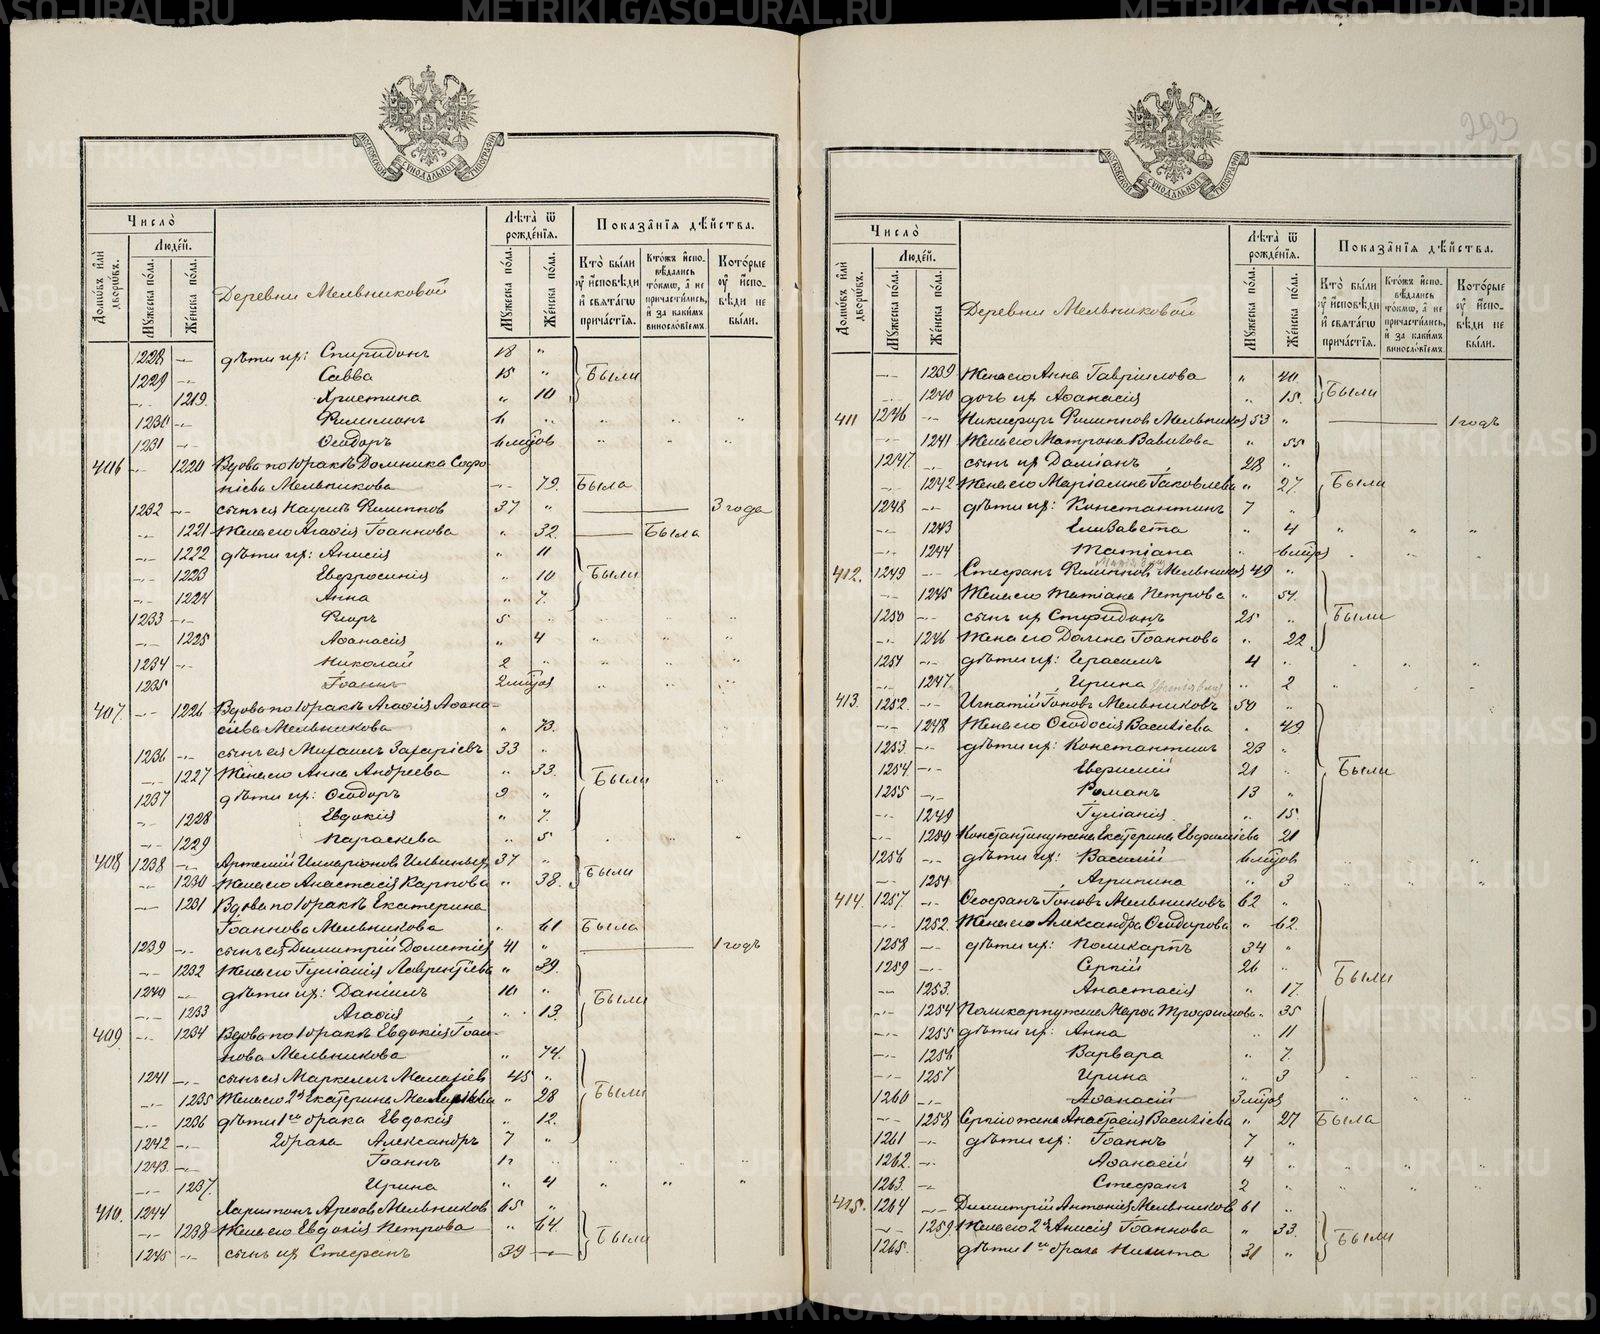 METRIKI.GASO-URAL.RU
МОСКОВСКОЙ СѴНОДАЛЬНОЙ ТИПОГРАФІИ
Число̀
Людей.
Домѡвъ и҆лѝ дворѡвъ.
Мꙋжеска пола.
Женска пола.
Деревни Мельниковой
Лѣта̀ ѿ рожденїѧ.
Мꙋжеска пола.
Женска пола.
Показанїѧ дѣйства.
Кто̀ были ᲂу҆ и҆сповѣди и҆ свѧтагѡ причастїѧ.
Ктожъ и҆сповѣдались токмѡ, а҆ не причастились, и҆ за какимъ винословїемъ
Которые ᲂу҆ и҆сповѣди не были.
1228 -„- дѣти их: Спиридонъ 18 „
1229 -„- Савва 15 „ Были
-„- 1219. Христина „ 10
1230 -„- Филимонъ „ „ „ „
1231 -„- Ѳеодоръ 6 мѣцов „ „ „
406 -„- 1220 Вдова по 1 бракѣ Домника Софо-
нiева Мельникова -„- 79. Была
1232 -„- сынъ ея Наумъ Филиппов 37 „ 3 года
-„- 1221 Жена его Агаѳiя Iоаннова „ 32. Была
-„- 1222 дѣти их: Анисiя „ 11
-„- 1223 Евфросинiя „ 10 Были
-„- 1224 Анна „ 7.
1233 -„- Флоръ 5 „ „ „ „
-„- 1225 Аѳанасiя „ 4 „ „ „
1234 -„- Николай 2 „ „ „ „
1235 Iоаннъ 2 мѣцов „ „ „
407. -„- 1226 Вдова по 1 бракѣ Агаѳiя Аѳана-
сiева Мельникова „ 73.
1236 -„- сынъ ея Михаилъ Захарiевъ 33 „
-„- 1227 Жена его Анна Андреева „ 33. Были
1237 дѣти их: Ѳеодоръ 9 „
-„- 1228 Евдокiя „ 7.
-„- 1229 Параскева „ 5 „ „ „
408 1238 -„- Артемiй Илларiонов Ильиных 37 „
-„- 1230 Жена его Анастасiя Карпова „ 38. Были
-„- 1231 Вдова по 1 бракѣ Екатерина
Iоаннова Мельникова „ 61 Была
1239 -„- сынъ ея Димитрiй Дометiев 41 „ 1 годъ
-„- 1232 Жена его Iулiанiя Лаврентiева „ 39.
1240 -„- дѣти их: Данiилъ 16 „ Были
-„- 1233 Агаѳiя „ 13.
409. -„- 1234 Вдова по 1 бракѣ Евдокiя Iоан-
нова Мельникова „ 74.
1241 -„- сынъ ея Маркеллъ Малахiев 45 „
-„- 1235 Жена его 2я Екатерина „ 28 Были
-„- 1236 дѣти 1го брака Евдокiя „ 12.
1242 -„- 2 брака Александръ 7 „
1243 -„- Iоаннъ „ „ „ „
-„- 1237. Ирина „ 4 „ „ „
410. 1244 Харитонъ Мельников 65 „
-„- 1238 Жена его Евдокiя Петрова „ 64. Были
1245 -„- сынъ их Стефанъ 39 -„-
293
МОСКОВСКОЙ СѴНОДАЛЬНОЙ ТИПОГРАФІИ
Число̀
Людей.
Домѡвъ и҆лѝ дворѡвъ.
Мꙋжеска пола.
Женска пола.
Деревни Мельниковой
Лѣта̀ ѿ рожденїѧ.
Мꙋжеска пола.
Женска пола.
Показанїѧ дѣйства.
Кто̀ были ᲂу҆ и҆сповѣди и҆ свѧтагѡ причастїѧ.
Ктожъ и҆сповѣдались токмѡ, а҆ не причастились, и҆ за какимъ винословїемъ
Которые ᲂу҆ и҆сповѣди не были.
-„- 1239 Жена его Анна Гаврiилова „ 40.
-„- 1240 дочь их Аѳанасiя „ 15. Были
411 1246 -„- Никифоръ Филиппов Мельников 53 „ 1 годъ
-„- 1241 Жена его Матрона Вавилова „ 55
1247. -„- сынъ их Дамiанъ 28 „
-„- 1242 Жена его Марiамна Iаковлева „ 27. Были
1248 -„- дѣти их: Константинъ 7 „
-„- 1243 Елизавета „ 4 „ „ „
-„- 1244 Татiана „ 6 мѣцов „ „
412. 1249 -„- Стефанъ Филиппов Мельников 49 „
-„- 1245 Жена его Татiана Петрова „ 54.
1250 -„- сынъ их Спиридонъ 25 „ Были
-„- 1246 Жена его Домна Iоаннова „ 22
1251 -„- дѣти их: Герасимъ 4 „ „ „ „
-„- 1247. Ирина „ 2 „ „ „
413. 1252. -„- Игнатiй Iоновъ Мельниковъ 50 „
-„- 1248 Жена его Ѳеодосiя Васильева „ 49
1253. -„- дѣти их: Константинъ 23 „
1254. -„- Евфимiй 21 „ Были
1255 -„- Романъ 13 „
-„- 1249 Iулiанiя „ 15.
-„- 1250 Константину жена Екатерина Евфимiева „ 21
1256 -„- дѣти их: Василiй 6 мѣцов „ „ „
-„- 1251 Агрипина „ 3 „ „ „
414. 1257. -„- Ѳеофанъ Iоновъ Мельниковъ 62 „
-„- 1252. Жена его Александра Ѳеодорова „ 62.
1258 -„- дѣти их: Поликарпъ 34 „
1259 -„- Сергiй 26 „ Были
-„- 1253. Анастасiя „ 17.
-„- 1254 Поликарпу жена Трофимова „ 35
-„- 1255 дѣти их: Анна „ 11
-„- 1256 Варвара „ 7.
-„- 1257 Ирина „ 3 „ „ „
1260 -„- Аѳанасiй 3 мѣцов „ „ „
-„- 1258 Сергiю жена Анастасiя Васильева „ 27 Была
1261 -„- дѣти их: Iоаннъ 7 „
1262. -„- Аѳанасiй 4 „ „ „ „
1263. -„- Стефанъ 2 „ „ „ „
415. 1264 -„- Димитрiй Антонiев Мельников 61 „
-„- 1259 Жена его 2я Анисiя Iоаннова „ 33. Были
1265. дѣти 1го брака Никита 31 „